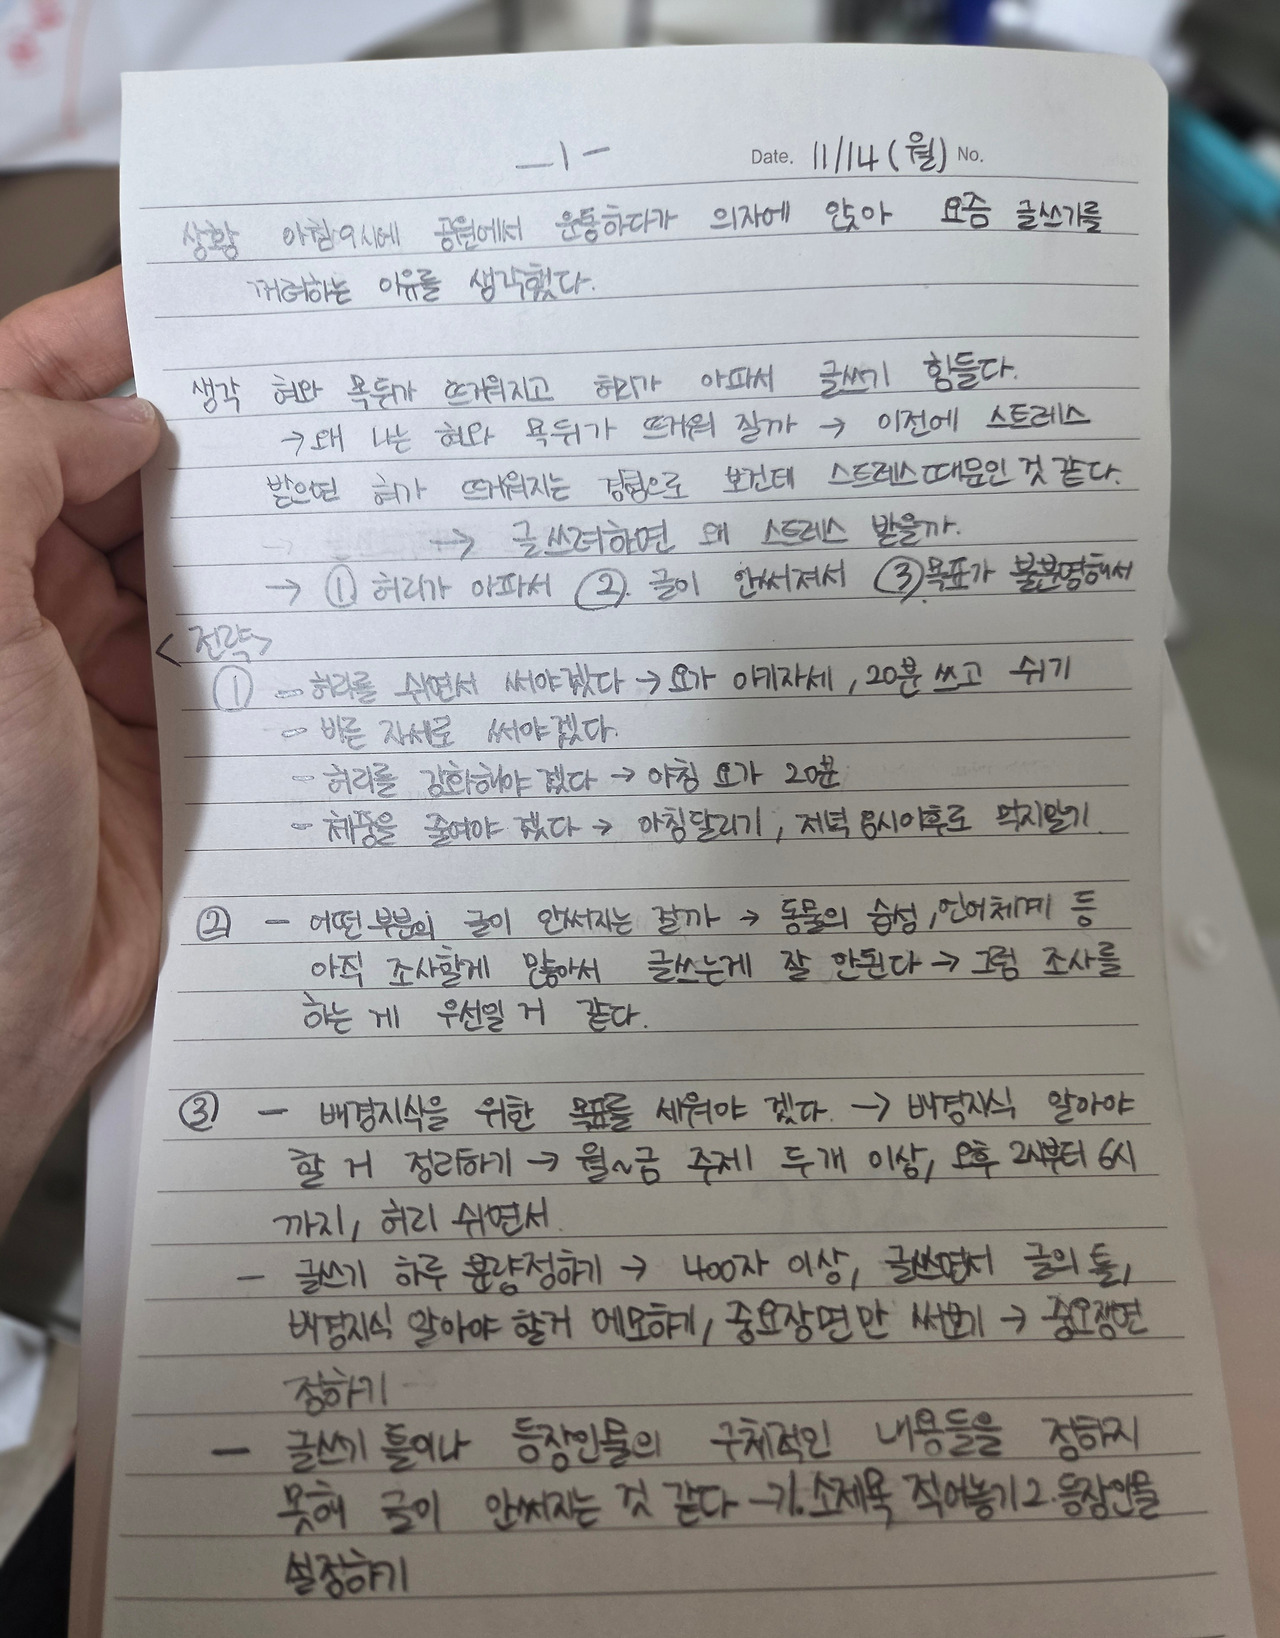 — 1 — Date. 11/14 (월) No.
상황 아침 9시에 공원에서 운동하다가 의자에 앉아 요즘 글쓰기를
꺼려하는 이유를 생각했다.
생각 혀와 목뒤가 뜨거워지고 허리가 아파서 글쓰기 힘들다.
→ 왜 나는 혀와 목뒤가 뜨거워 질까 → 이전에 스트레스
받으면 혀가 뜨거워지는 경험으로 보건데 스트레스 때문인 것 같다.
→ 글쓰려하면 왜 스트레스 받을까.
→ ① 허리가 아파서 ②. 글이 안써져서 ③.목표가 불분명해서
<전략>
① - 허리를 쉬면서 써야겠다 → 요가 아기자세, 20분 쓰고 쉬기
- 바른 자세로 써야겠다.
- 허리를 강화해야 겠다 → 아침 요가 20분
- 체중을 줄여야 겠다 → 아침달리기, 저녁 8시이후로 먹지말기
② - 어떤 부분의 글이 안써지는 걸까 → 동물의 습성, 언어체계 등
아직 조사할게 많아서 글쓰는게 잘 안된다 → 그럼 조사를
하는 게 우선일 거 같다.
③ - 배경지식을 위한 목표를 세워야 겠다. → 배경지식 알아야
할 거 정리하기 → 월~금 주제 두개 이상, 오후 2시부터 6시
까지, 허리 쉬면서
- 글쓰기 하루 분량정하기 → 400자 이상, 글쓰면서 글의 틀,
배경지식 알아야 할거 메모하기, 중요장면만 써보기 → 중요장면
정하기
- 글쓰기 틀이나 등장인물의 구체적인 내용들을 정하지
못해 글이 안써지는 것 같다 → 1. 소제목 적어놓기 2. 등장인물
설정하기